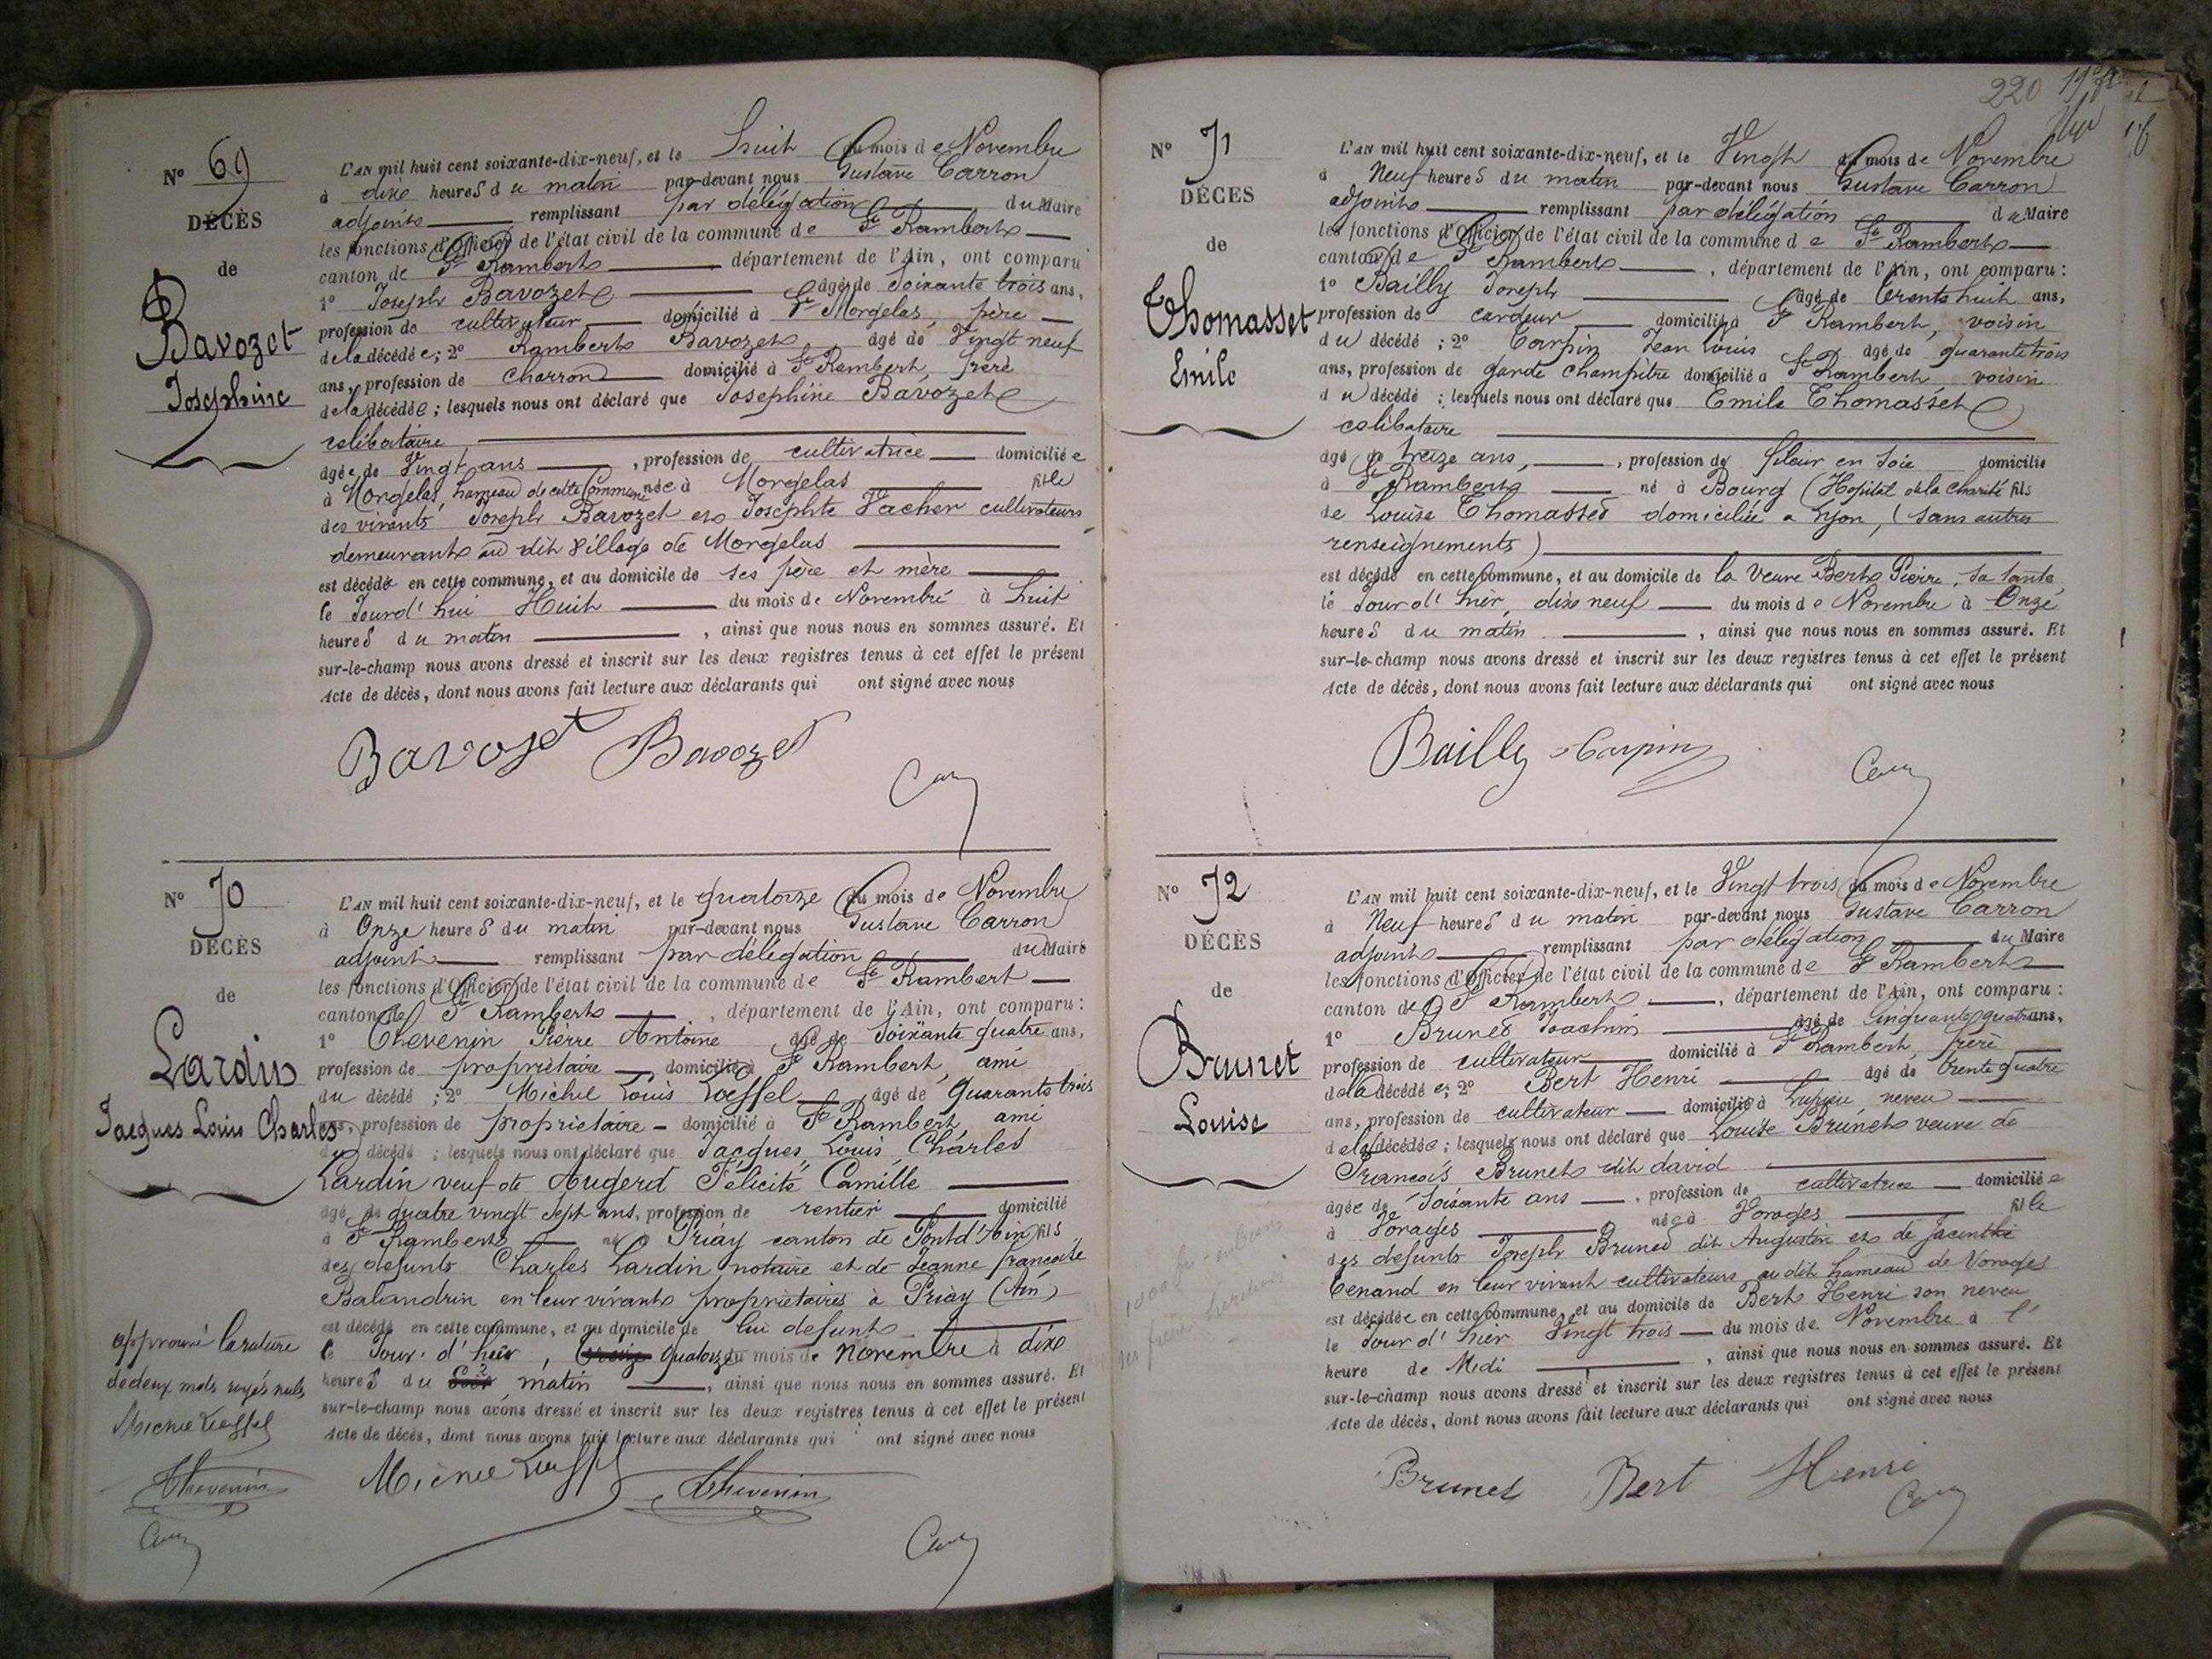 Nº 69
DÉCÈS
de
Bavozet
Joséphine
L'AN mil huit cent soixante-dix-neuf, et le huit du mois de Novembre
à dix heures du matin par-devant nous Gustave Carron
adjoint remplissant par délégation du Maire
les fonctions d'Officier de l'état civil de la commune de St Rambert
canton de St Rambert département de l'Ain, ont comparu
1º Joseph Bavozet âgé de Soixante trois ans,
profession de cultivateur domicilié à St Morgelas, père
de la décédée; 2º Rambert Bavozet âgé de Vingt neuf
ans, profession de charron domicilié à St Rambert, frère
de la décédée; lesquels nous ont déclaré que Joséphine Bavozet
célibataire
âgée de Vingt ans, profession de cultivatrice domiciliée
à Morgelas, hameau de cette Commune née à Morgelas fille
des vivants Joseph Bavozet et Josephte Vacher cultivateurs
demeurants au dit village de Morgelas
est décédée en cette commune, et au domicile de ses père et mère
le Jourd'hui Huit du mois de Novembre à huit
heures du matin, ainsi que nous nous en sommes assuré. Et
sur-le-champ nous avons dressé et inscrit sur les deux registres tenus à cet effet le présent
Acte de décès, dont nous avons fait lecture aux déclarants qui ont signé avec nous
Bavozet Bavozet
Nº 70
DÉCÈS
de
Lardin
Jacques Louis Charles
L'AN mil huit cent soixante-dix-neuf, et le quatorze du mois de Novembre
à Onze heures du matin par-devant nous Gustave Carron
adjoint remplissant par délégation du Maire
les fonctions d'Officier de l'état civil de la commune de St Rambert
canton de St Rambert, département de l'Ain, ont comparu :
1º Thevenin Pierre Antoine âgé de Soixante quatre ans,
profession de propriétaire, domicilié à St Rambert, ami
du décédé ; 2º Michel Louis Loeffel âgé de quarante trois
ans, profession de propriétaire domicilié à St Rambert, ami
du décédé ; lesquels nous ont déclaré que Jacques, Louis, Charles
Lardin veuf de Augerd Félicité Camille
âgé de quatre vingt sept ans, profession de rentier domicilié
à St Rambert né à Priay canton de Pont d'Ain fils
des defunts Charles Lardin notaire et de Jeanne françoise
Balandrin en leur vivants propriétaires à Priay (Ain)
est décédé en cette commune, et au domicile de lui defunt
le Jour d'hier, quatorze du mois de novembre à dix
heures du matin, ainsi que nous nous en sommes assuré. Et
sur-le-champ nous avons dressé et inscrit sur les deux registres tenus à cet effet le présent
Acte de décès, dont nous avons fait lecture aux déclarants qui ont signé avec nous
approuvé la rature
de deux mots rayés nuls
Michel Loeffel
Thevenin
Michel Loeffel Thevenin
220
Nº 71
DÉCÈS
de
Thomasset
Emile
L'AN mil huit cent soixante-dix-neuf, et le Vingt du mois de Novembre
à Neuf heures du matin par-devant nous Gustave Carron
adjoint remplissant par délégation du Maire
les fonctions d'Officier de l'état civil de la commune de St Rambert
canton de St Rambert, département de l'Ain, ont comparu :
1º Bailly Joseph âgé de trente huit ans,
profession de cardeur domicilié à St Rambert, voisin
du décédé ; 2º Carpin Jean Louis âgé de quarante trois
ans, profession de garde champêtre domicilié à St Rambert, voisin
du décédé ; lesquels nous ont déclaré que Emile Thomasset
célibataire
âgé de treize ans, profession de fileur en soie domicilié
à St Rambert né à Bourg (Hopital de la Charité fils
de Louise Thomasset domiciliée a Lyon, (sans autres
renseignements)
est décédé en cette commune, et au domicile de la Veuve Bert Pierre, sa tante
le Jour d'hier, dix neuf du mois de Novembre à Onze
heures du matin, ainsi que nous nous en sommes assuré. Et
sur-le-champ nous avons dressé et inscrit sur les deux registres tenus à cet effet le présent
Acte de décès, dont nous avons fait lecture aux déclarants qui ont signé avec nous
Bailly Carpin
Nº 72
DÉCÈS
de
Brunet
Louise
L'AN mil huit cent soixante-dix-neuf, et le Vingt trois du mois de Novembre
à Neuf heures du matin par-devant nous Gustave Carron
adjoint remplissant par délégation du Maire
les fonctions d'Officier de l'état civil de la commune de St Rambert
canton de St Rambert, département de l'Ain, ont comparu :
1º Brunet Joachim âgé de Cinquante quatre ans,
profession de cultivateur domicilié à St Rambert, frère
de la décédée; 2º Bert Henri âgé de trente quatre
ans, profession de cultivateur domicilié à Lupieu neveu
de la décédée; lesquels nous ont déclaré que Louise Brunet veuve de
François Brunet dit david
âgée de Soixante ans, profession de cultivatrice domiciliée
à Vorages née à Vorages fille
des defunts Joseph Brunet dit Augustin et de Jacinthe
Tenand en leur vivant cultivateurs au dit hameau de Vorages
est décédée en cette commune, et au domicile de Bert Henri son neveu
le Jour d'hier Vingt trois du mois de Novembre à l'
heure de Midi, ainsi que nous nous en sommes assuré. Et
sur-le-champ nous avons dressé et inscrit sur les deux registres tenus à cet effet le présent
Acte de décès, dont nous avons fait lecture aux déclarants qui ont signé avec nous
Brunet Bert Henri